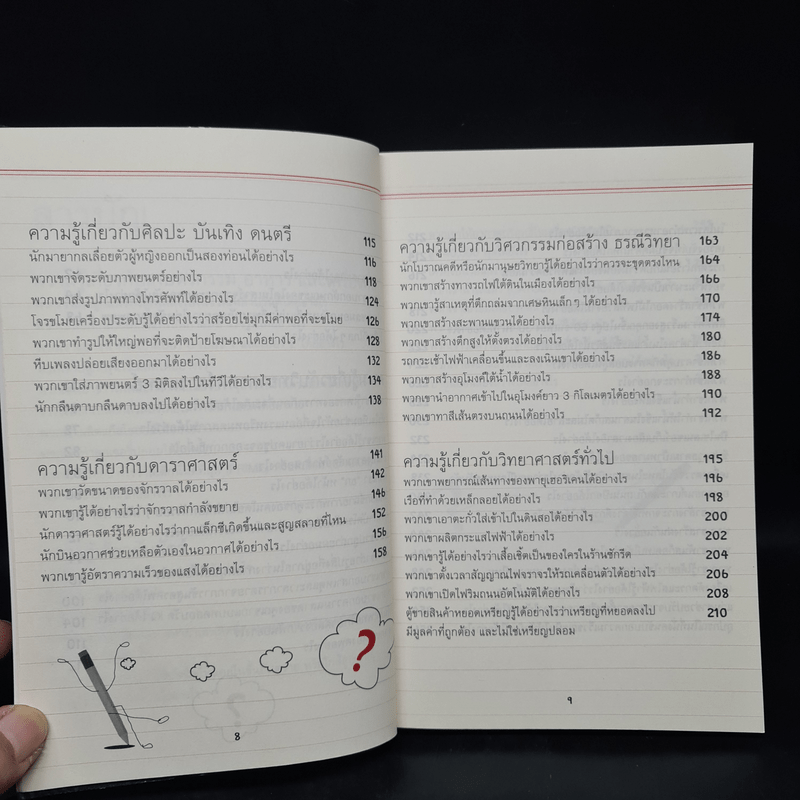 ความรู้เกี่ยวกับศิลปะ บันเทิง ดนตรี 115
นักมายากลเลื่อยตัวผู้หญิงออกเป็นสองท่อนได้อย่างไร 116
พวกเขาจัดระดับภาพยนตร์อย่างไร 118
พวกเขาส่งรูปภาพทางโทรศัพท์ได้อย่างไร 124
โจรขโมยเครื่องประดับรู้ได้อย่างไรว่าสร้อยไข่มุกมีค่าพอที่จะขโมย 126
พวกเขาทำรูปให้ใหญ่พอที่จะติดป้ายโฆษณาได้อย่างไร 128
หีบเพลงปล่อยเสียงออกมาได้อย่างไร 132
พวกเขาใส่ภาพยนตร์ 3 มิติลงไปในทีวีได้อย่างไร 134
นักกลืนดาบกลืนดาบลงไปได้อย่างไร 138
ความรู้เกี่ยวกับดาราศาสตร์ 141
พวกเขาวัดขนาดของจักรวาลได้อย่างไร 142
พวกเขารู้ได้อย่างไรว่าจักรวาลกำลังขยาย 146
นักดาราศาสตร์รู้ได้อย่างไรว่ากาแล็กซีเกิดขึ้นและสูญสลายที่ไหน 152
นักบินอวกาศช่วยเหลือตัวเองในอวกาศได้อย่างไร 156
พวกเขารู้อัตราความเร็วของแสงได้อย่างไร 158
?
8
ความรู้เกี่ยวกับวิศวกรรมก่อสร้าง ธรณีวิทยา 163
นักโบราณคดีหรือนักมานุษยวิทยารู้ได้อย่างไรว่าควรจะขุดตรงไหน 164
พวกเขาสร้างทางรถไฟใต้ดินในเมืองได้อย่างไร 166
พวกเขารู้สาเหตุที่ตึกถล่มจากเศษหินเล็กๆ ได้อย่างไร 170
พวกเขาสร้างสะพานแขวนได้อย่างไร 174
พวกเขาสร้างตึกสูงให้ตั้งตรงได้อย่างไร 180
รถกระเช้าไฟฟ้าเคลื่อนขึ้นและลงเนินเขาได้อย่างไร 186
พวกเขาสร้างอุโมงค์ใต้น้ำได้อย่างไร 188
พวกเขานำอากาศเข้าไปในอุโมงค์ยาว 3 กิโลเมตรได้อย่างไร 190
พวกเขาทาสีเส้นตรงบนถนนได้อย่างไร 192
ความรู้เกี่ยวกับวิทยาศาสตร์ทั่วไป 195
พวกเขาพยากรณ์เส้นทางของพายุเฮอริเคนได้อย่างไร 196
เรือที่ทำด้วยเหล็กลอยได้อย่างไร 198
พวกเขาเอาตะกั่วใส่เข้าไปในดินสอได้อย่างไร 200
พวกเขาผลิตกระแสไฟฟ้าได้อย่างไร 202
พวกเขารู้ได้อย่างไรว่าเสื้อเชิ้ตเป็นของใครในร้านซักรีด 204
พวกเขาตั้งเวลาสัญญาณไฟจราจรให้รถเคลื่อนตัวได้อย่างไร 206
พวกเขาเปิดไฟริมถนนอัตโนมัติได้อย่างไร 208
ตู้ขายสินค้าหยอดเหรียญรู้ได้อย่างไรว่าเหรียญที่หยอดลงไป 210
มีมูลค่าที่ถูกต้อง และไม่ใช่เหรียญปลอม
9